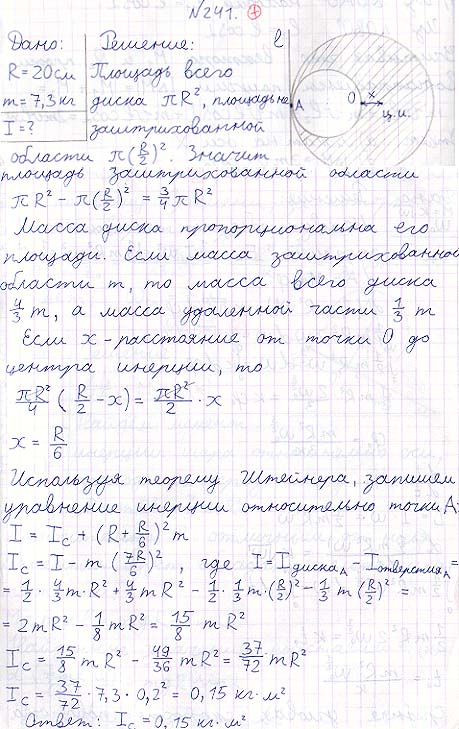 №241. +
Дано: Решение:
R = 20 см Площадь всего
m = 7,3 кг диска πR², площадь не
I = ? заштрихованной
l
A O x
ц.и.
области π(R/2)². Значит
площадь заштрихованной области
πR² - π(R/2)² = 3/4 πR²
Масса диска пропорциональна его
площади. Если масса заштрихованной
области m, то масса всего диска
4/3 m, а масса удаленной части 1/3 m
Если x - расстояние от точки О до
центра инерции, то
πR²/4 (R/2 - x) = πR²/2 · x
x = R/6
Используя теорему Штейнера, запишем
уравнение инерции относительно точки А:
I = I_C + (R + R/6)² m
I_C = I - m (7R/6)², где I = I диска_A - I отверстия_A =
= 1/2 · 4/3 m · R² + 4/3 m R² - 1/2 · 1/3 m · (R/2)² - 1/3 m (R/2)² =
= 2mR² - 1/8 mR² = 15/8 mR²
I_C = 15/8 mR² - 49/36 mR² = 37/72 mR²
I_C = 37/72 · 7,3 · 0,2² = 0,15 кг·м²
Ответ: I_C = 0,15 кг·м²